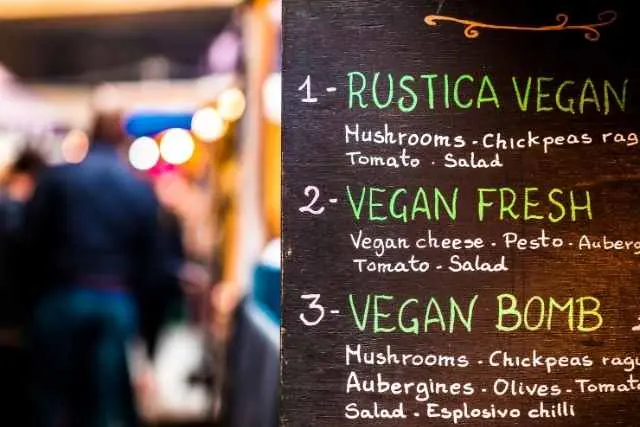 1 - RUSTICA VEGAN
Mushrooms - Chickpeas rag
Tomato - Salad
2 - VEGAN FRESH
Vegan cheese - Pesto - Auberg
Tomato - Salad
3 - VEGAN BOMB
Mushrooms - Chickpeas ragu
Aubergines - Olives - Tomat
Salad - Esplosivo chilli